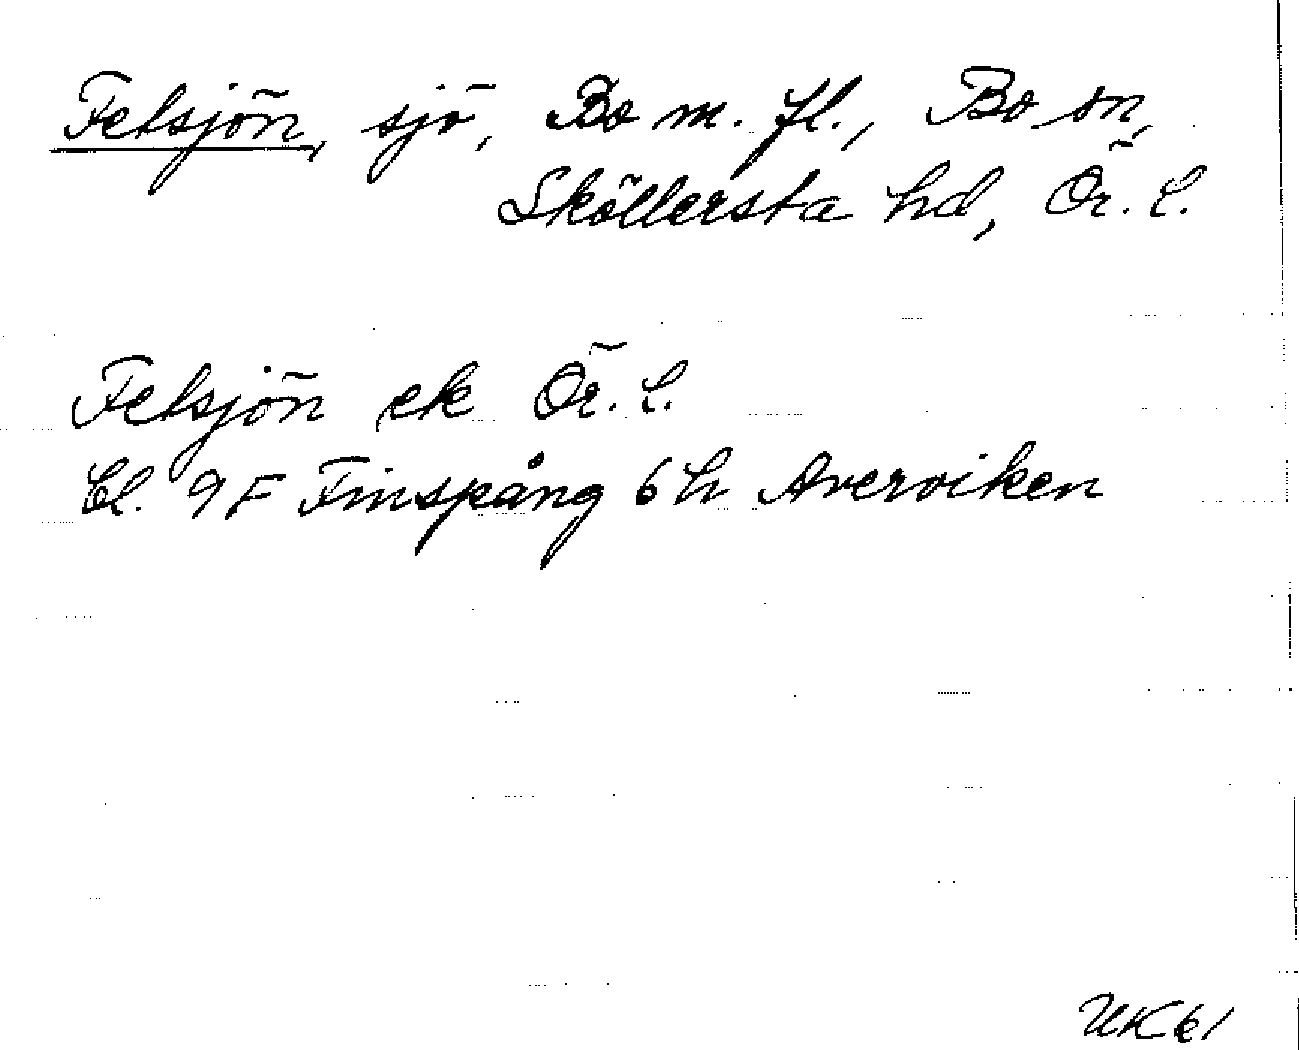 Felsjön, sjö, Bo m. fl., Bo sn,
Sköllersta hd, Ör. l.
Felsjön ek Ör. l.
bl. 9F Finspång 6h Averviken